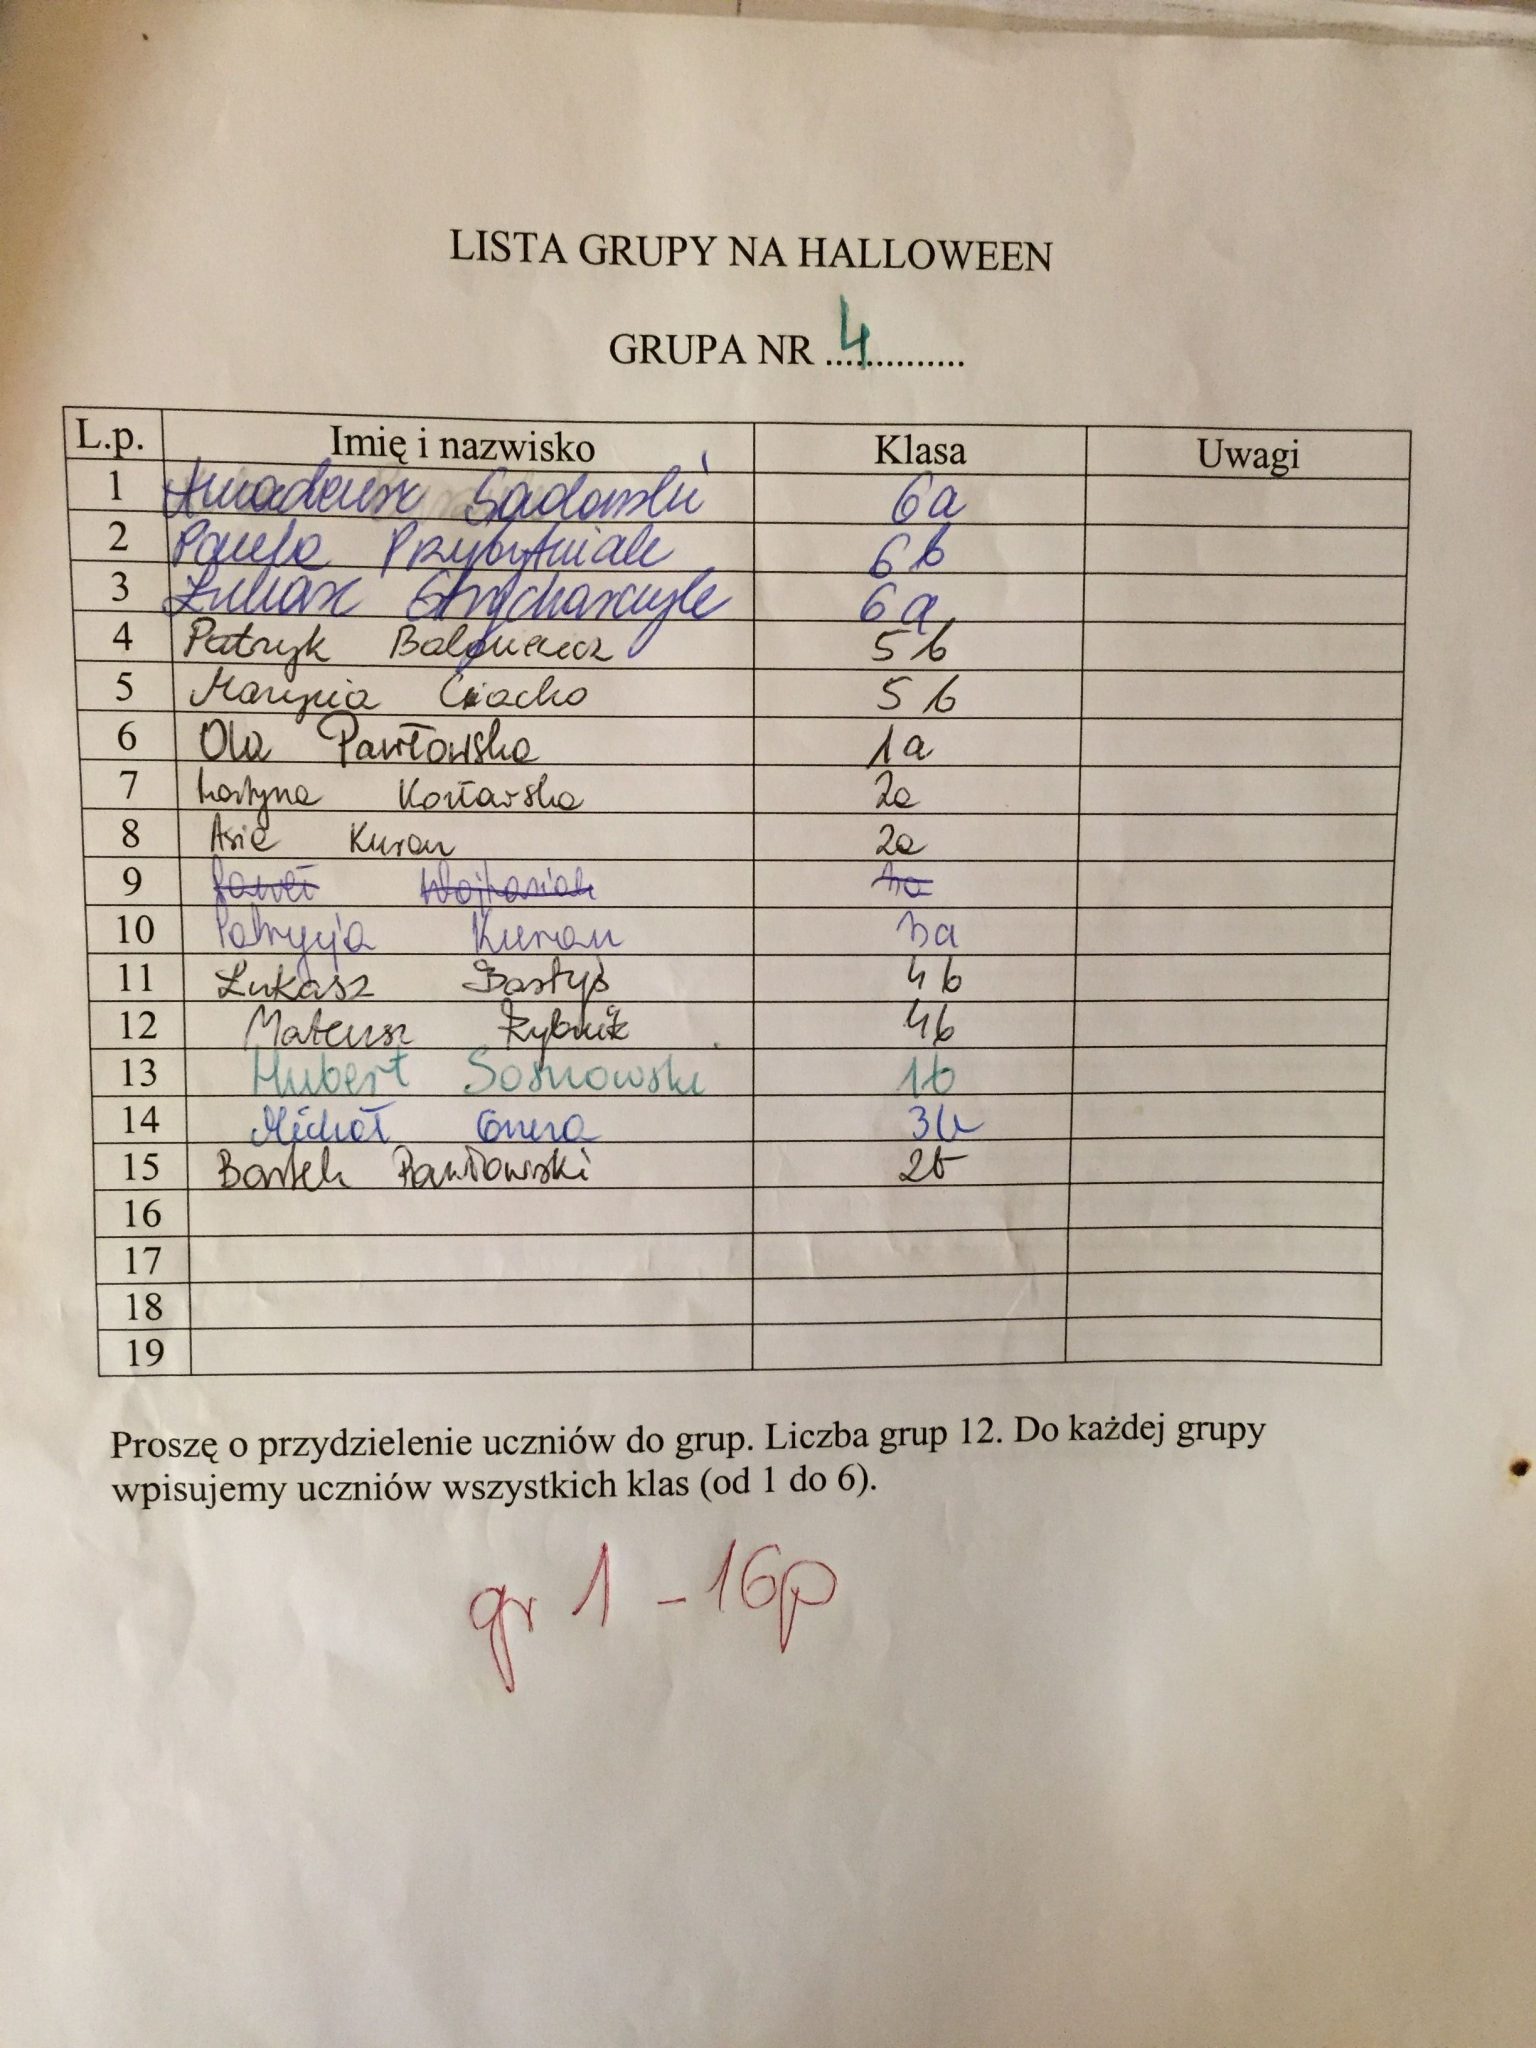 LISTA GRUPY NA HALLOWEEN
GRUPA NR ...4...........
L.p. Imię i nazwisko Klasa Uwagi
1 Amadeusz Sadowski 6a
2 Paula Przybytniak 6b
3 Łukasz Strycharczyk 6a
4 Patryk 5b
5 Marysia Ciacho 5b
6 Ola Pawłowska 1a
7 2a
8 Asia Kuran 2a
9 Paweł
10 Patrycja Kuran 3a
11 Łukasz Bastyś 4b
12 Mateusz Rybnik 4b
13 Hubert Sosnowski 1b
14 Michał 3b
15 Bartek Pawłowski 2b
16
17
18
19
Proszę o przydzielenie uczniów do grup. Liczba grup 12. Do każdej grupy
wpisujemy uczniów wszystkich klas (od 1 do 6).
gr 1 - 16p